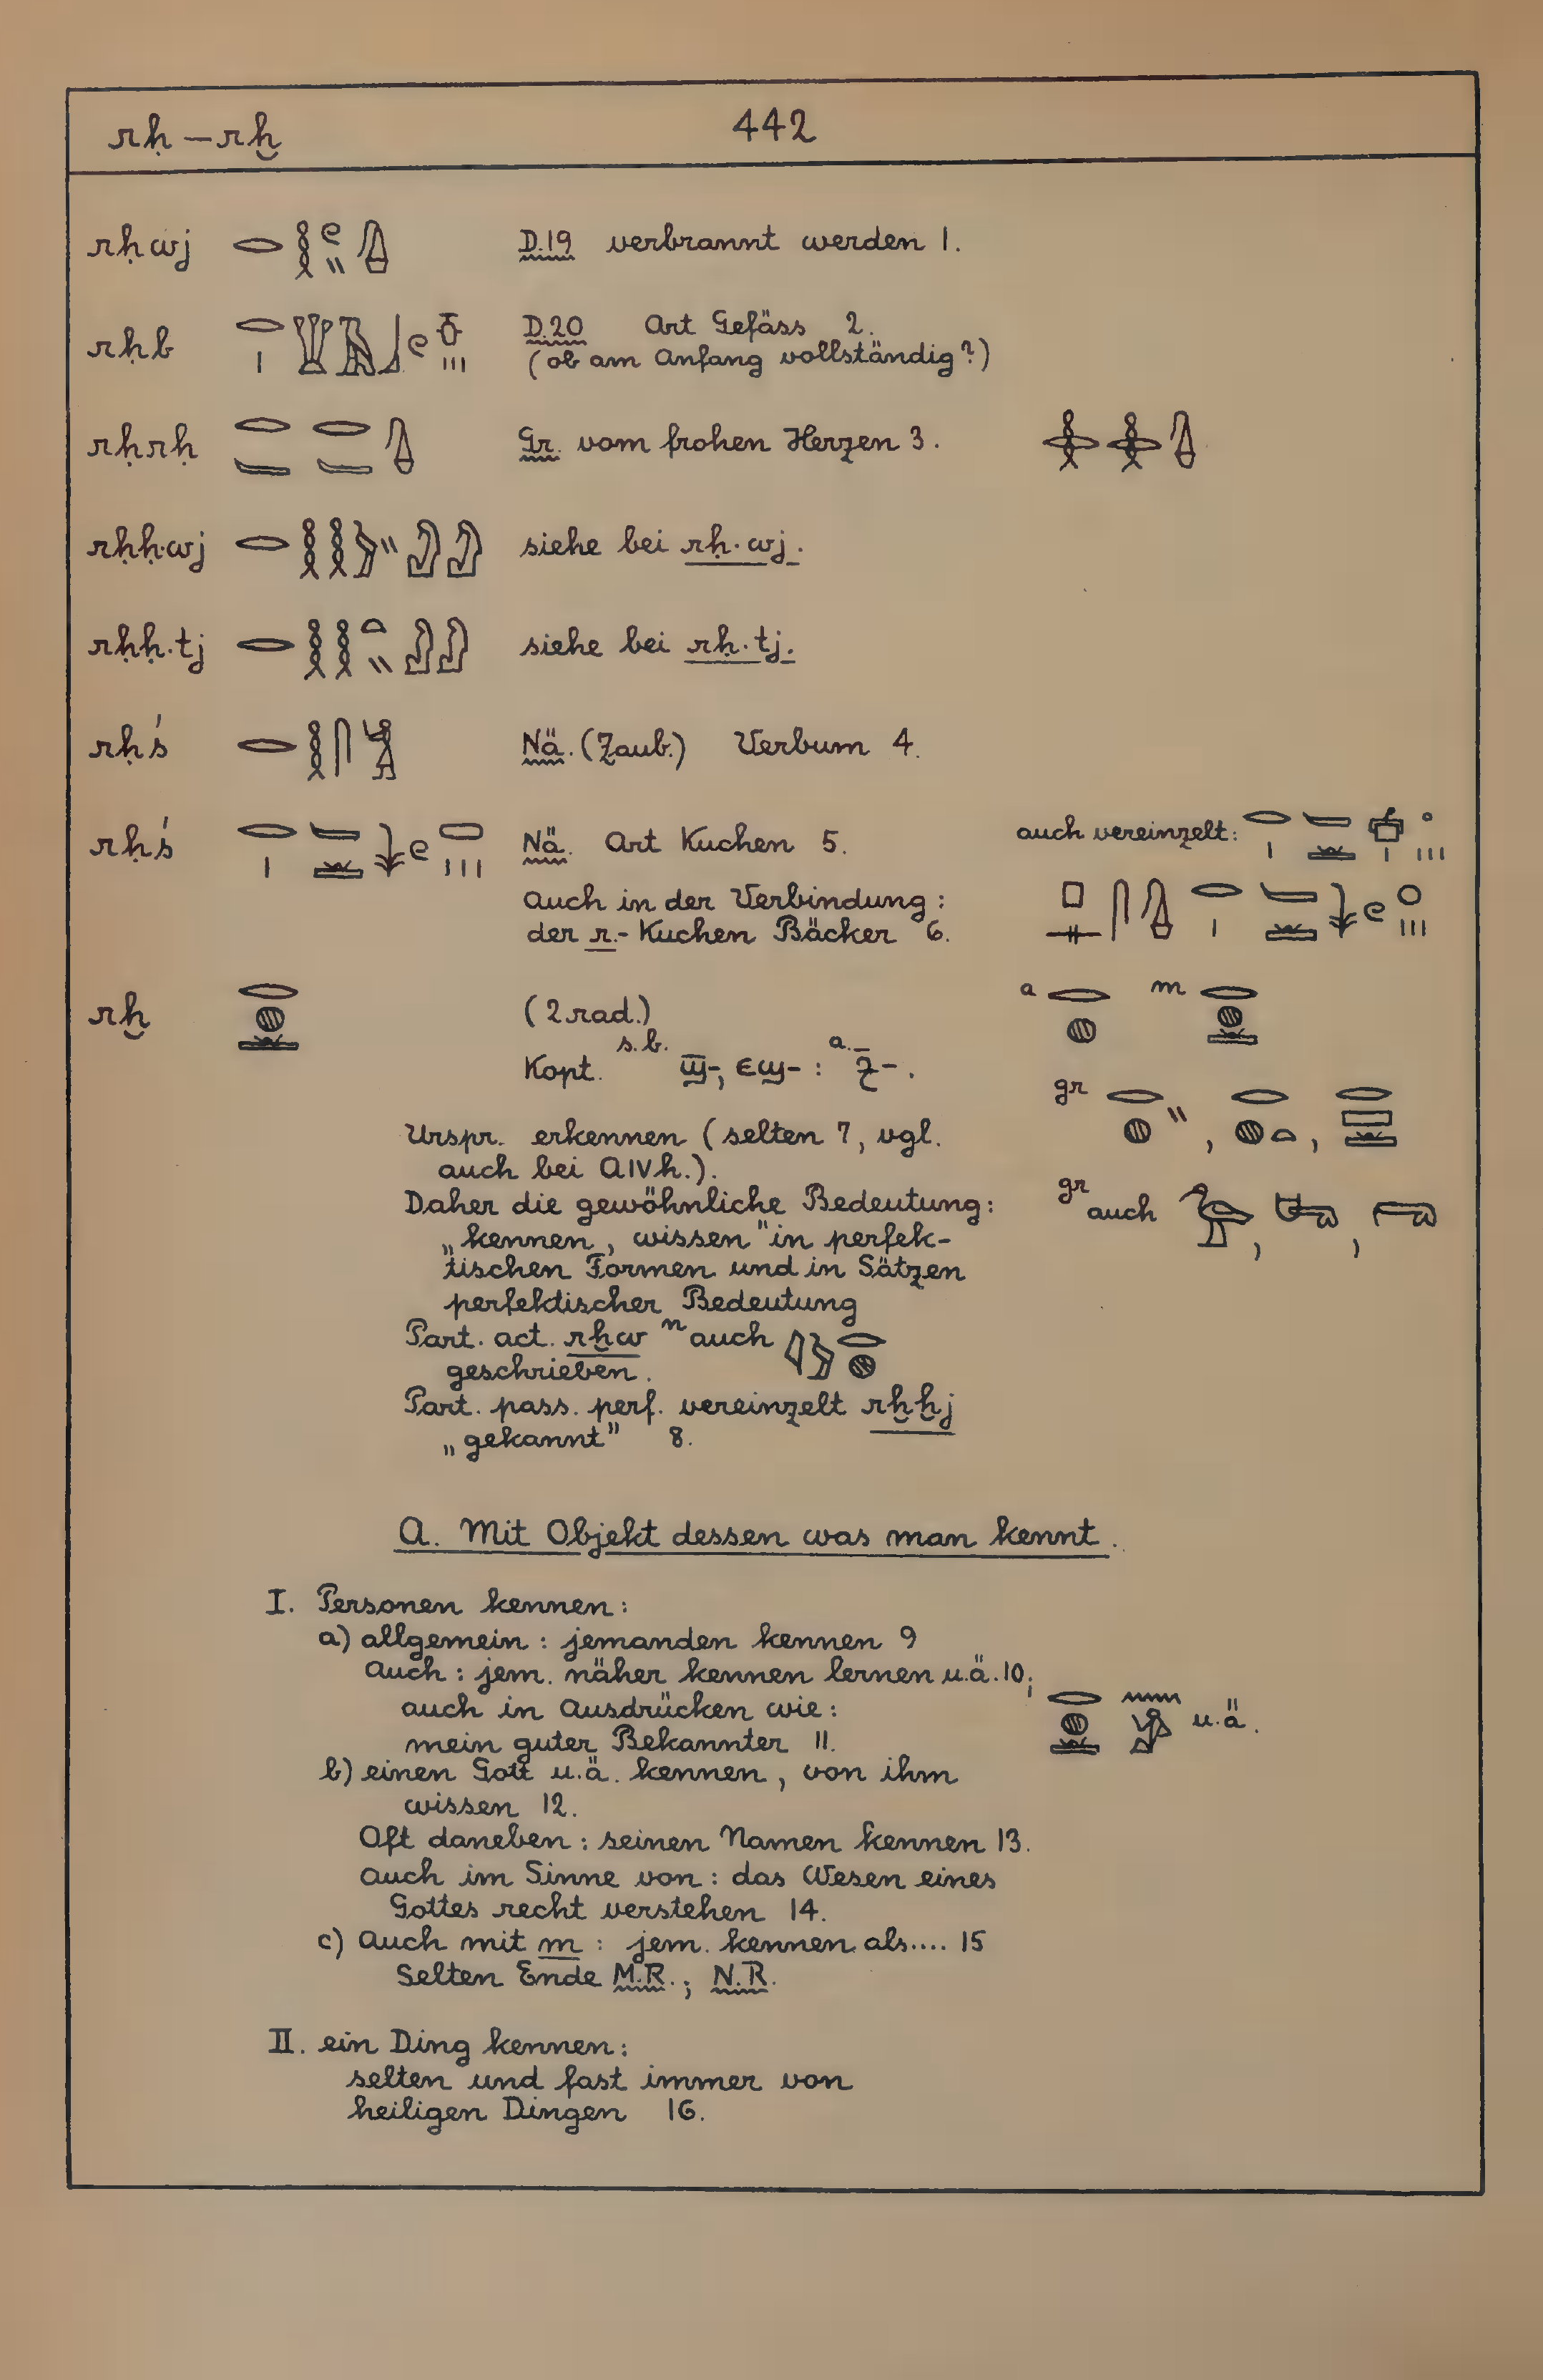 rḥ – rḫ 442
rḥwj D.19 verbrannt werden 1.
rḥb D.20 Art Gefäss 2.
(ob am Anfang vollständig?)
rḥrḥ Gr. vom frohen Herzen 3.
rḥḥ·wj siehe bei rḥ·wj.
rḥḥ·tj siehe bei rḥ·tj.
rḥś Nä. (Zaub.) Verbum 4.
rḥś Nä. Art Kuchen 5. auch vereinzelt:
Auch in der Verbindung:
der r.-Kuchen Bäcker 6.
rḫ (2rad.) a m
Kopt. s.b. ϣ̅-, ⲉϣ- : a. ϩ̅- .
gr
Urspr. erkennen (selten 7, vgl.
auch bei A IV h.).
Daher die gewöhnliche Bedeutung: gr auch
„kennen, wissen" in perfek-
tischen Formen und in Sätzen
perfektischer Bedeutung
Part. act. rḫw n auch 𓇋𓅱𓂋𓐍
geschrieben.
Part. pass. perf. vereinzelt rḫḫj
„gekannt" 8.
A. Mit Objekt dessen was man kennt.
I. Personen kennen:
a) allgemein: jemanden kennen 9
Auch: jem. näher kennen lernen u.ä. 10;
auch in Ausdrücken wie: u.ä.
mein guter Bekannter 11.
b) einen Gott u.ä. kennen, von ihm
wissen 12.
Oft daneben: seinen Namen kennen 13.
Auch im Sinne von: das Wesen eines
Gottes recht verstehen 14.
c) Auch mit m: jem. kennen als.... 15
Selten Ende M.R.; N.R.
II. ein Ding kennen:
selten und fast immer von
heiligen Dingen 16.